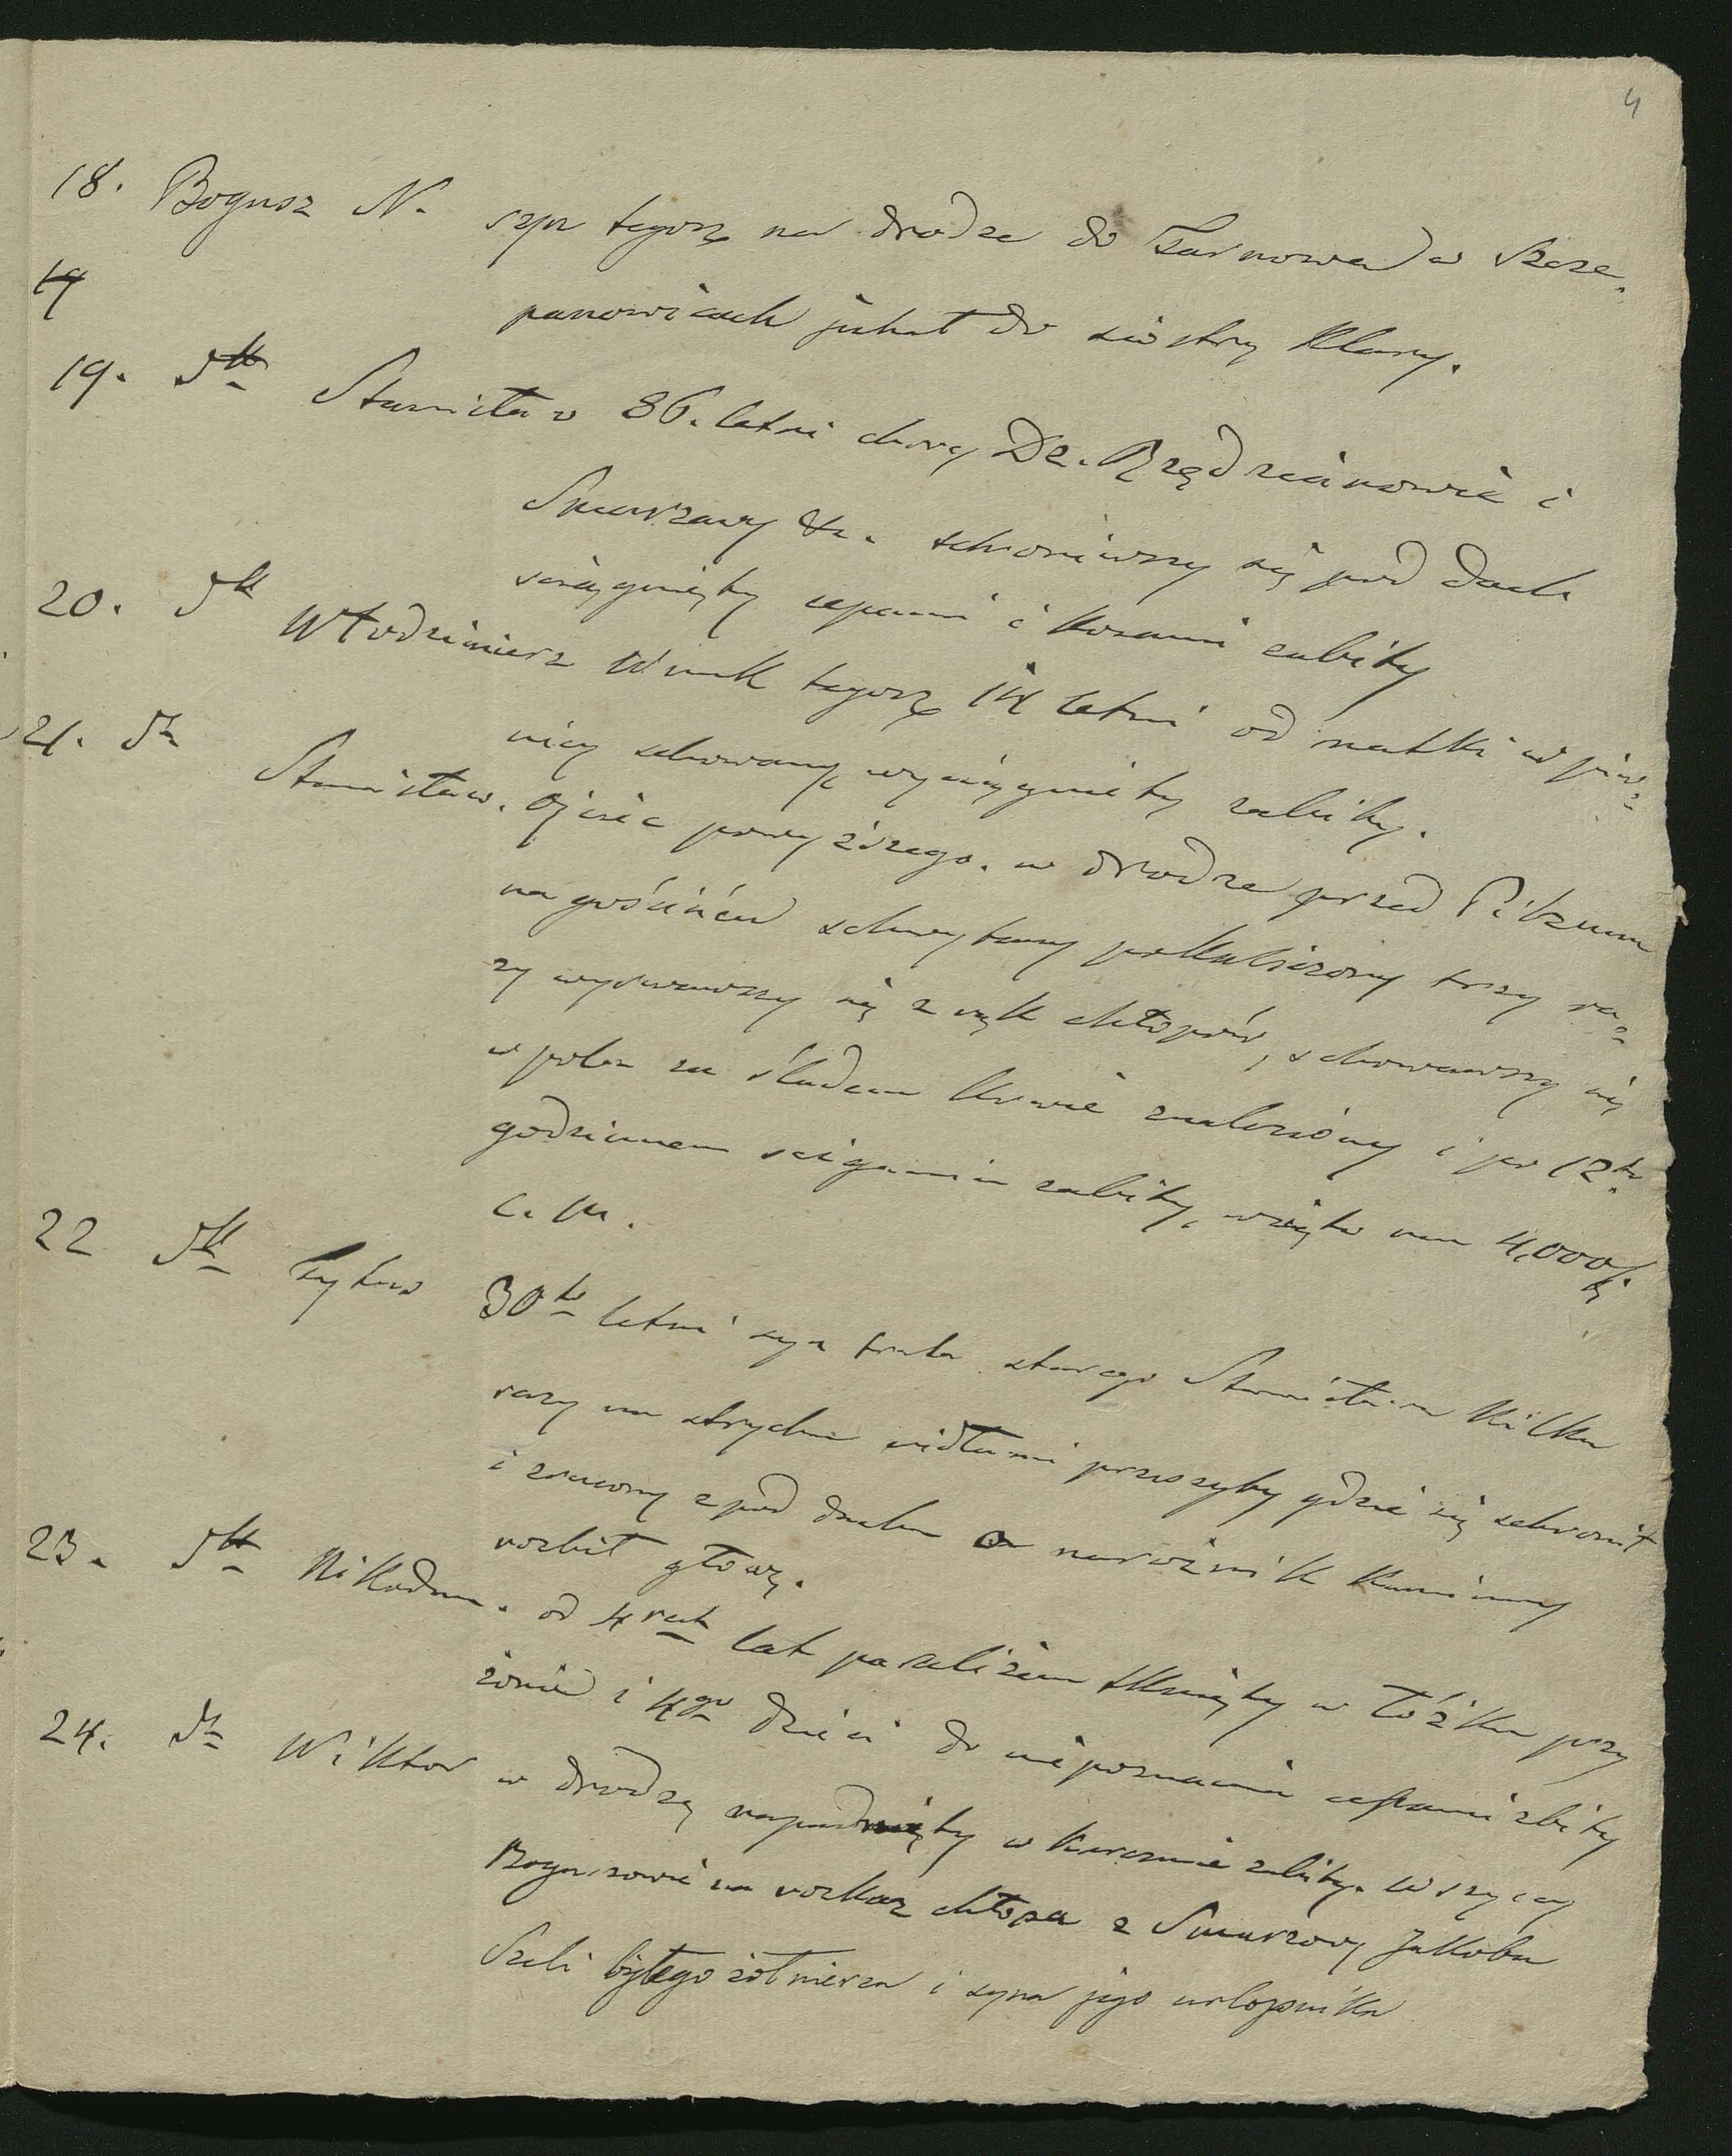 4
18. Bogusz N. syn tegoż na drodze do Tarnowa w Szcze-
panowicach jechał do siostry Klary.
19
19. dtto Stanisław 86. letni chory Dz. Rzędzianowic i
Smarzowy &c. schroniwszy się pod dach
ściągnięty cepami i kosami zabity
20. dtto Włodzimierz Wnuk tegoż 14 letni od matki w piw-
nicy schowany wyciągnięty zabity.
21. dto Stanisław. Ojciec powyższego. w drodze przed Pilznem
na gościńcu schwytany pokaliczony trzy ra-
zy wyrwawszy się z rąk chłopów, schowawszy się
w polu za śladem krwi znaleziony i po 12to
godzinnem ściganiu zabity, wzięto mu 4,000 f.
C. M.
22 dtto Tytus 30to letni syn trzeci starego Stanisława kilka
razy na strychu widłami przeszyty gdzie się schronił
i zrzucony z pod dachu o narożnik kamienny
rozbił głowę.
23. dtto Nikodem. od 4rech lat paraliżem tknięty w łóżku przy
żonie i 4go dzieci do niepoznania cepami zbity
24. dto Wiktor w drodze napadnięty w karczmie zabity. Wszyscy
Boguszowie na rozkaz chłopa z Smarzowy Jakoba
Szeli byłego żołnierza i syna jego urlopnika